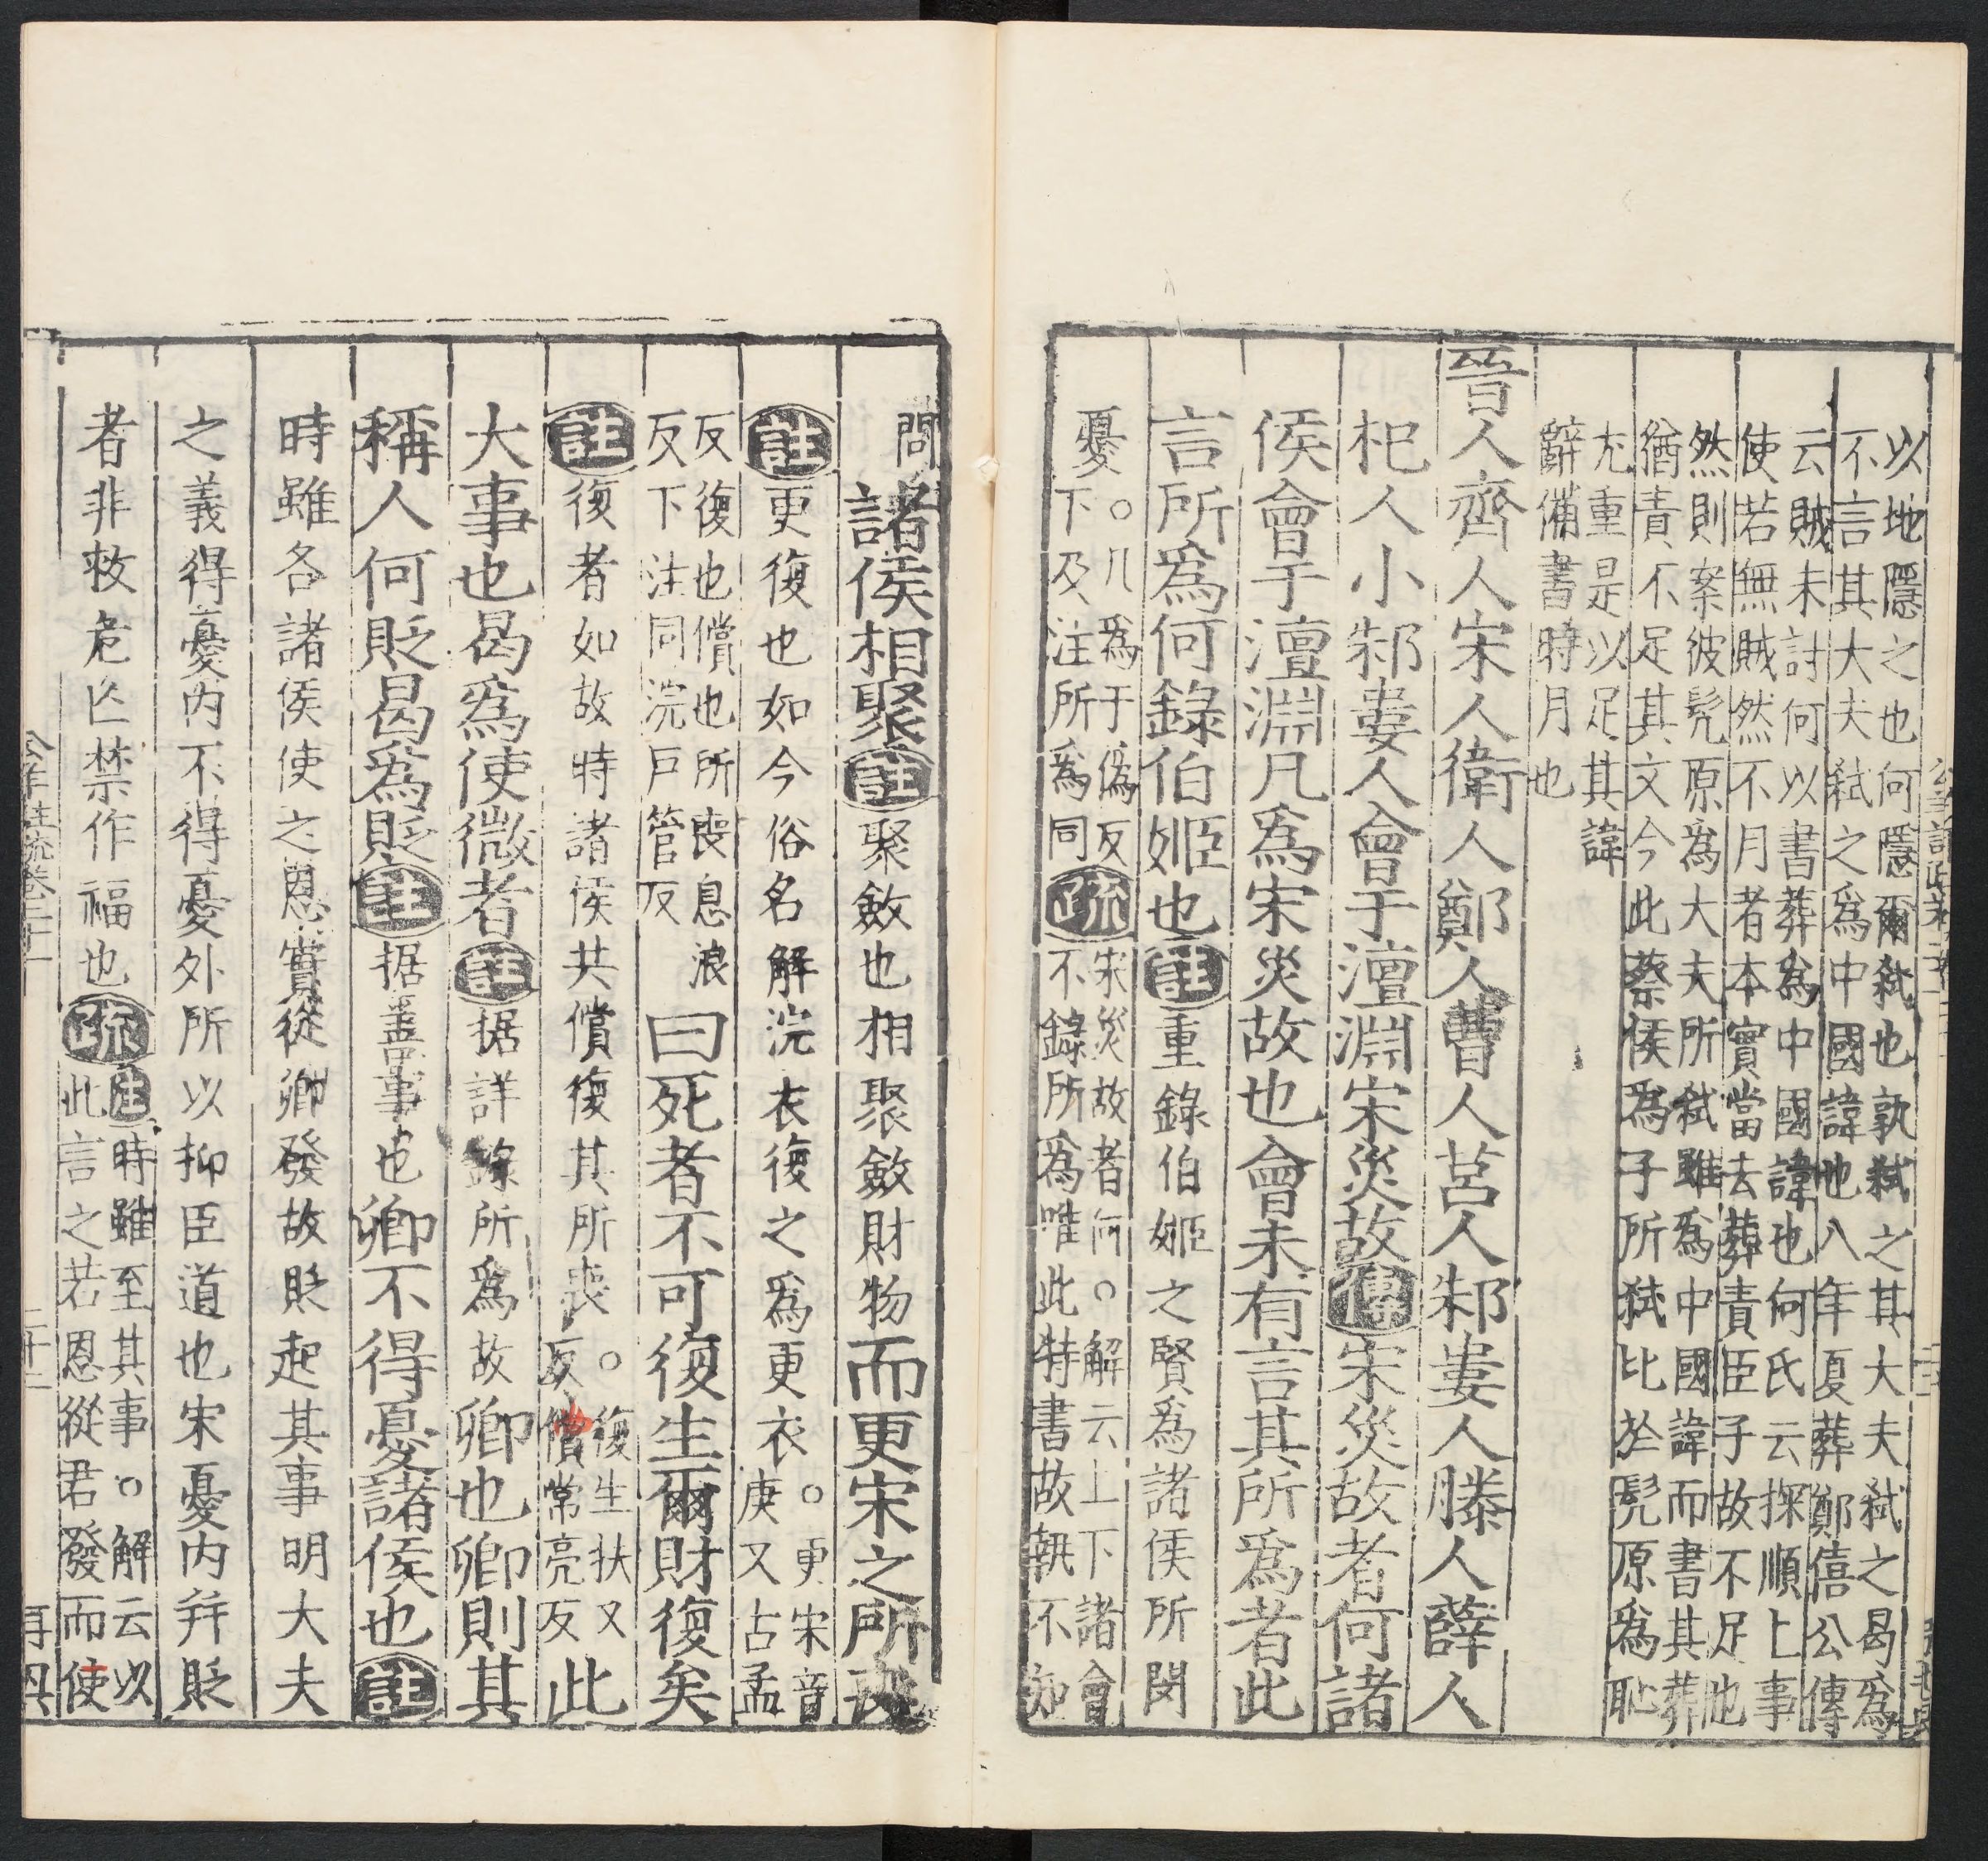 以地隱之也何隱爾弑也孰弑之其大夫弑之曷爲
不言其大夫弑之爲中國諱也八年夏葬鄭僖公傳
云賊未討何以書葬爲中國諱也何氏云探順上事
使若無賊然不月者本實當去葬責臣子故不足也
然則案彼髡原爲大夫所弑雖爲中國諱而書其葬
猶責不足其文今此蔡侯爲子所弑比於髡原爲恥
尤重是以足其諱
辭備書時月也
晉人齊人宋人衛人鄭人曹人莒人邾婁人滕人薛人
杞人小邾婁人會于澶淵宋災故傳宋災故者何諸
侯會于澶淵凡爲宋災故也會未有言其所爲者此
言所爲何錄伯姬也註重錄伯姬之賢爲諸侯所閔
憂○凡爲于僞反
下及注所爲同疏宋災故者何○解云上下諸會
不錄所爲唯此特書故執不知
問諸侯相聚註聚斂也相聚斂財物而更宋之所喪
註更復也如今俗名解浣衣復之爲更衣○更宋音
庚又古孟
反復也償也所喪息浪
反下注同浣戶管反曰死者不可復生爾財復矣
註復者如故時諸侯共償復其所喪○復生扶又
反償常亮反此
大事也曷爲使微者註据詳錄所爲故卿也卿則其
稱人何貶曷爲貶註据善事也卿不得憂諸侯也註
時雖各諸侯使之恩實從卿發故貶起其事明大夫
之義得憂內不得憂外所以抑臣道也宋憂內幷貶
者非救危亡禁作福也疏註時雖至其事○解云以
此言之若恩從君發而使
公羊註疏卷二十一
二十二